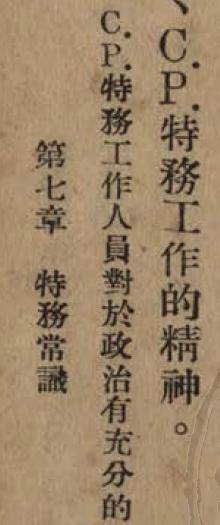 、C.P.特務工作的精神。
C.P.特務工作人員對於政治有充分的
第七章　特務常識